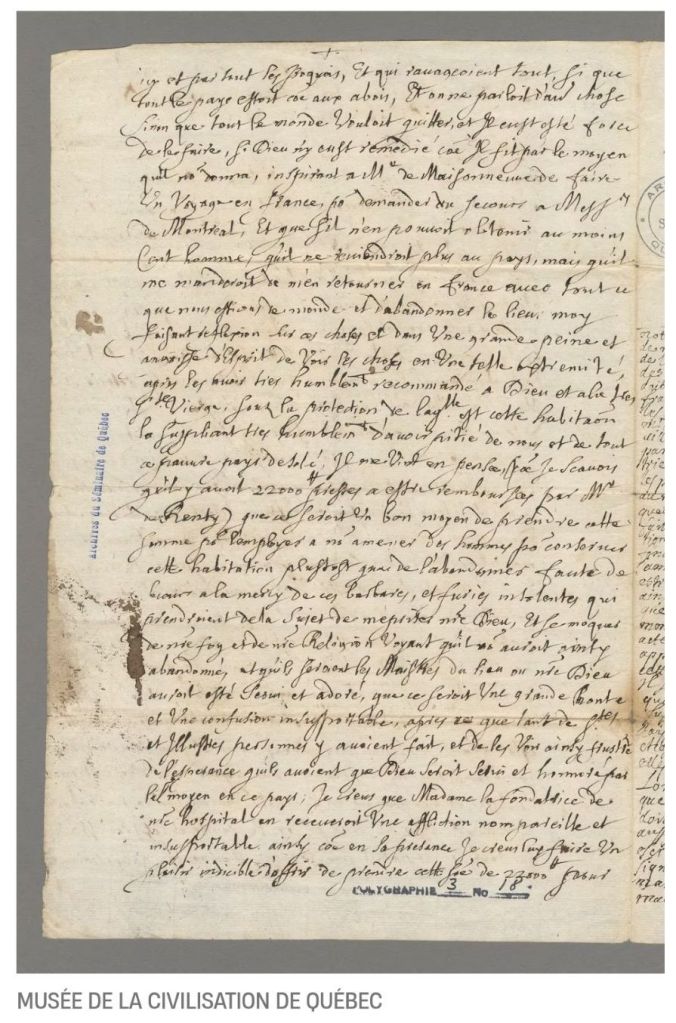 icy et par tout les Iroquois, Et qui ravageoient tout, si que
tout le pays estoit coe aux abois, Et on ne parloit d'au chose
sinon que tout le monde vouloit quitter, et il eust esté force
de le faire, si Dieu n'y eust remedié coe Il fit par le moyen
quil no donna, inspirant a Mr de Maisonneuve de faire
Un Voyage en france, po demander du secours a Messrs
de Montreal, Et que sil n'en pouvoit obtenir au moins
Cent hommes, qu'il ne reviendroit plus au pays, mais qu'il
me manderoit de m'en retourner en france avec tout ce
que nous estions de monde et d'abandonner le lieu. moy
faisant reflexion sur ces choses et dans Une grande peine et
angoisse d'Esprit de Voir les choses en Une telle extremité,
apres les avoir tres humblemt recommandé a Dieu et a la tres
Ste Vierge, sous la protection de laqlle est cette habitaon
la suppliant tres humblemt d'avoir pitié de nous et de tout
ce pauvre pays desolé, Il me Vint en pensée, coe Je scavois
qu'il y avoit 22000 # a estre remboursées par Mr
de Renty, que ce seroit Un bon moyen de prendre cette
somme po l'employer a no amener des hommes po conserver
cette habitation plustost que de l'abandonner faute de
secours a la mercy de ces barbares, et furies insolentes qui
prendroient de la sujet de mespriser nre Dieu, Et se moquer
de nre foy et de nre Religion Voyant qu'il no auroit ainsy
abandonnés, et qu'ils seroient les Maistres du lieu ou nre Dieu
auroit esté servi et adoré, que ce seroit Une grande honte
et Une confusion insuportable, apres ce que tant de stes
et Illustres personnes y avoient fait, et de les Voir ainsy frustré
de l'esperance qu'ils avoient que Dieu seroit servi et honnoré par
le moyen en ce pays; Je creus que Madame la fondatrice de
nre hospital en receveroit Une affliction nompareille et
insuportable ainsy coe en sa presence Je creus luy faire Un
plaisir indicible d'offrir de prendre cette soe de 22000 # pour
Archives du Séminaire de Québec
POLYGRAPHIE 3 No 18.
MUSÉE DE LA CIVILISATION DE QUÉBEC